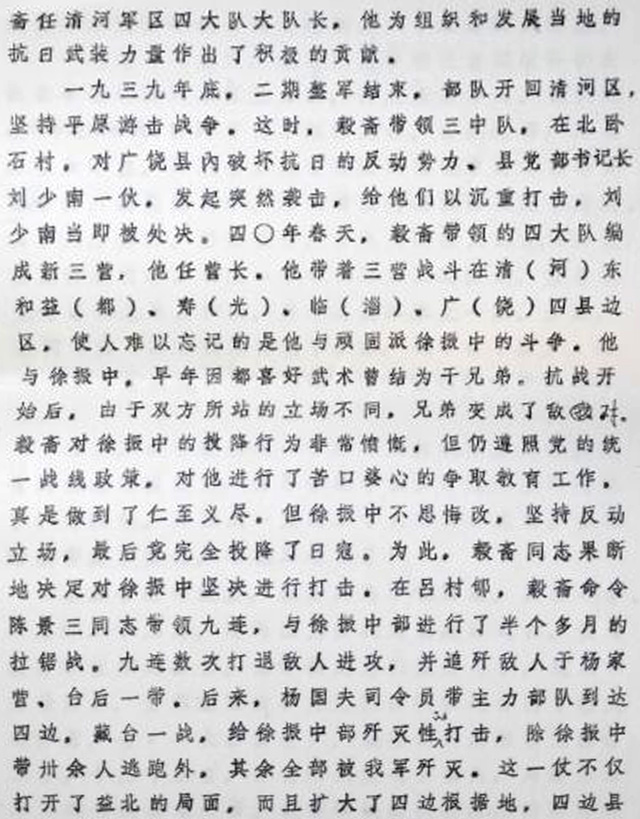 斋任清河军区四大队大队长，他为组织和发展当地的
抗日武装力量作出了积极的贡献．
一九三九年底，二期整军结束，部队开回清河区，
坚持平原游击战争。这时，毅斋带领三中队，在北卧
石村，对广饶县内破坏抗日的反动势力、县党部书记长
刘少南一伙，发起突然袭击，给他们以沉重打击，刘
少南当即被处决。四〇年春天，毅斋带领的四大队编
成新三营，他任营长。他带着三营战斗在清（河）东
和益（都）、寿（光）、临（淄）、广（饶）四县边
区，使人难以忘记的是他与顽固派徐振中的斗争。他
与徐振中，早年因都喜好武术曾结为干兄弟。抗战开
始后，由于双方所站的立场不同，兄弟变成了敌
毅斋对徐振中的投降行为非常愤慨，但仍遵照党的统
一战线政策，对他进行了苦口婆心的争取教育工作，
真是做到了仁至义尽。但徐振中不思悔改，坚持反动
立场，最后竟完全投降了日寇。为此，毅斋同志果断
地决定对徐振中坚决进行打击。在吕村邬，毅斋命令
陈景三同志带领九连，与徐振中部进行了半个多月的
拉锯战。九连数次打退敌人进攻，并追歼敌人于杨家
营、台后一带。后来，杨国夫司令员带主力部队到达
四边，藏台一战，给徐振中部歼灭性打击，除徐振中
带卅余人逃跑外，其余全部被我军歼灭。这一仗不仅
打开了益北的局面，而且扩大了四边根据地，四边县